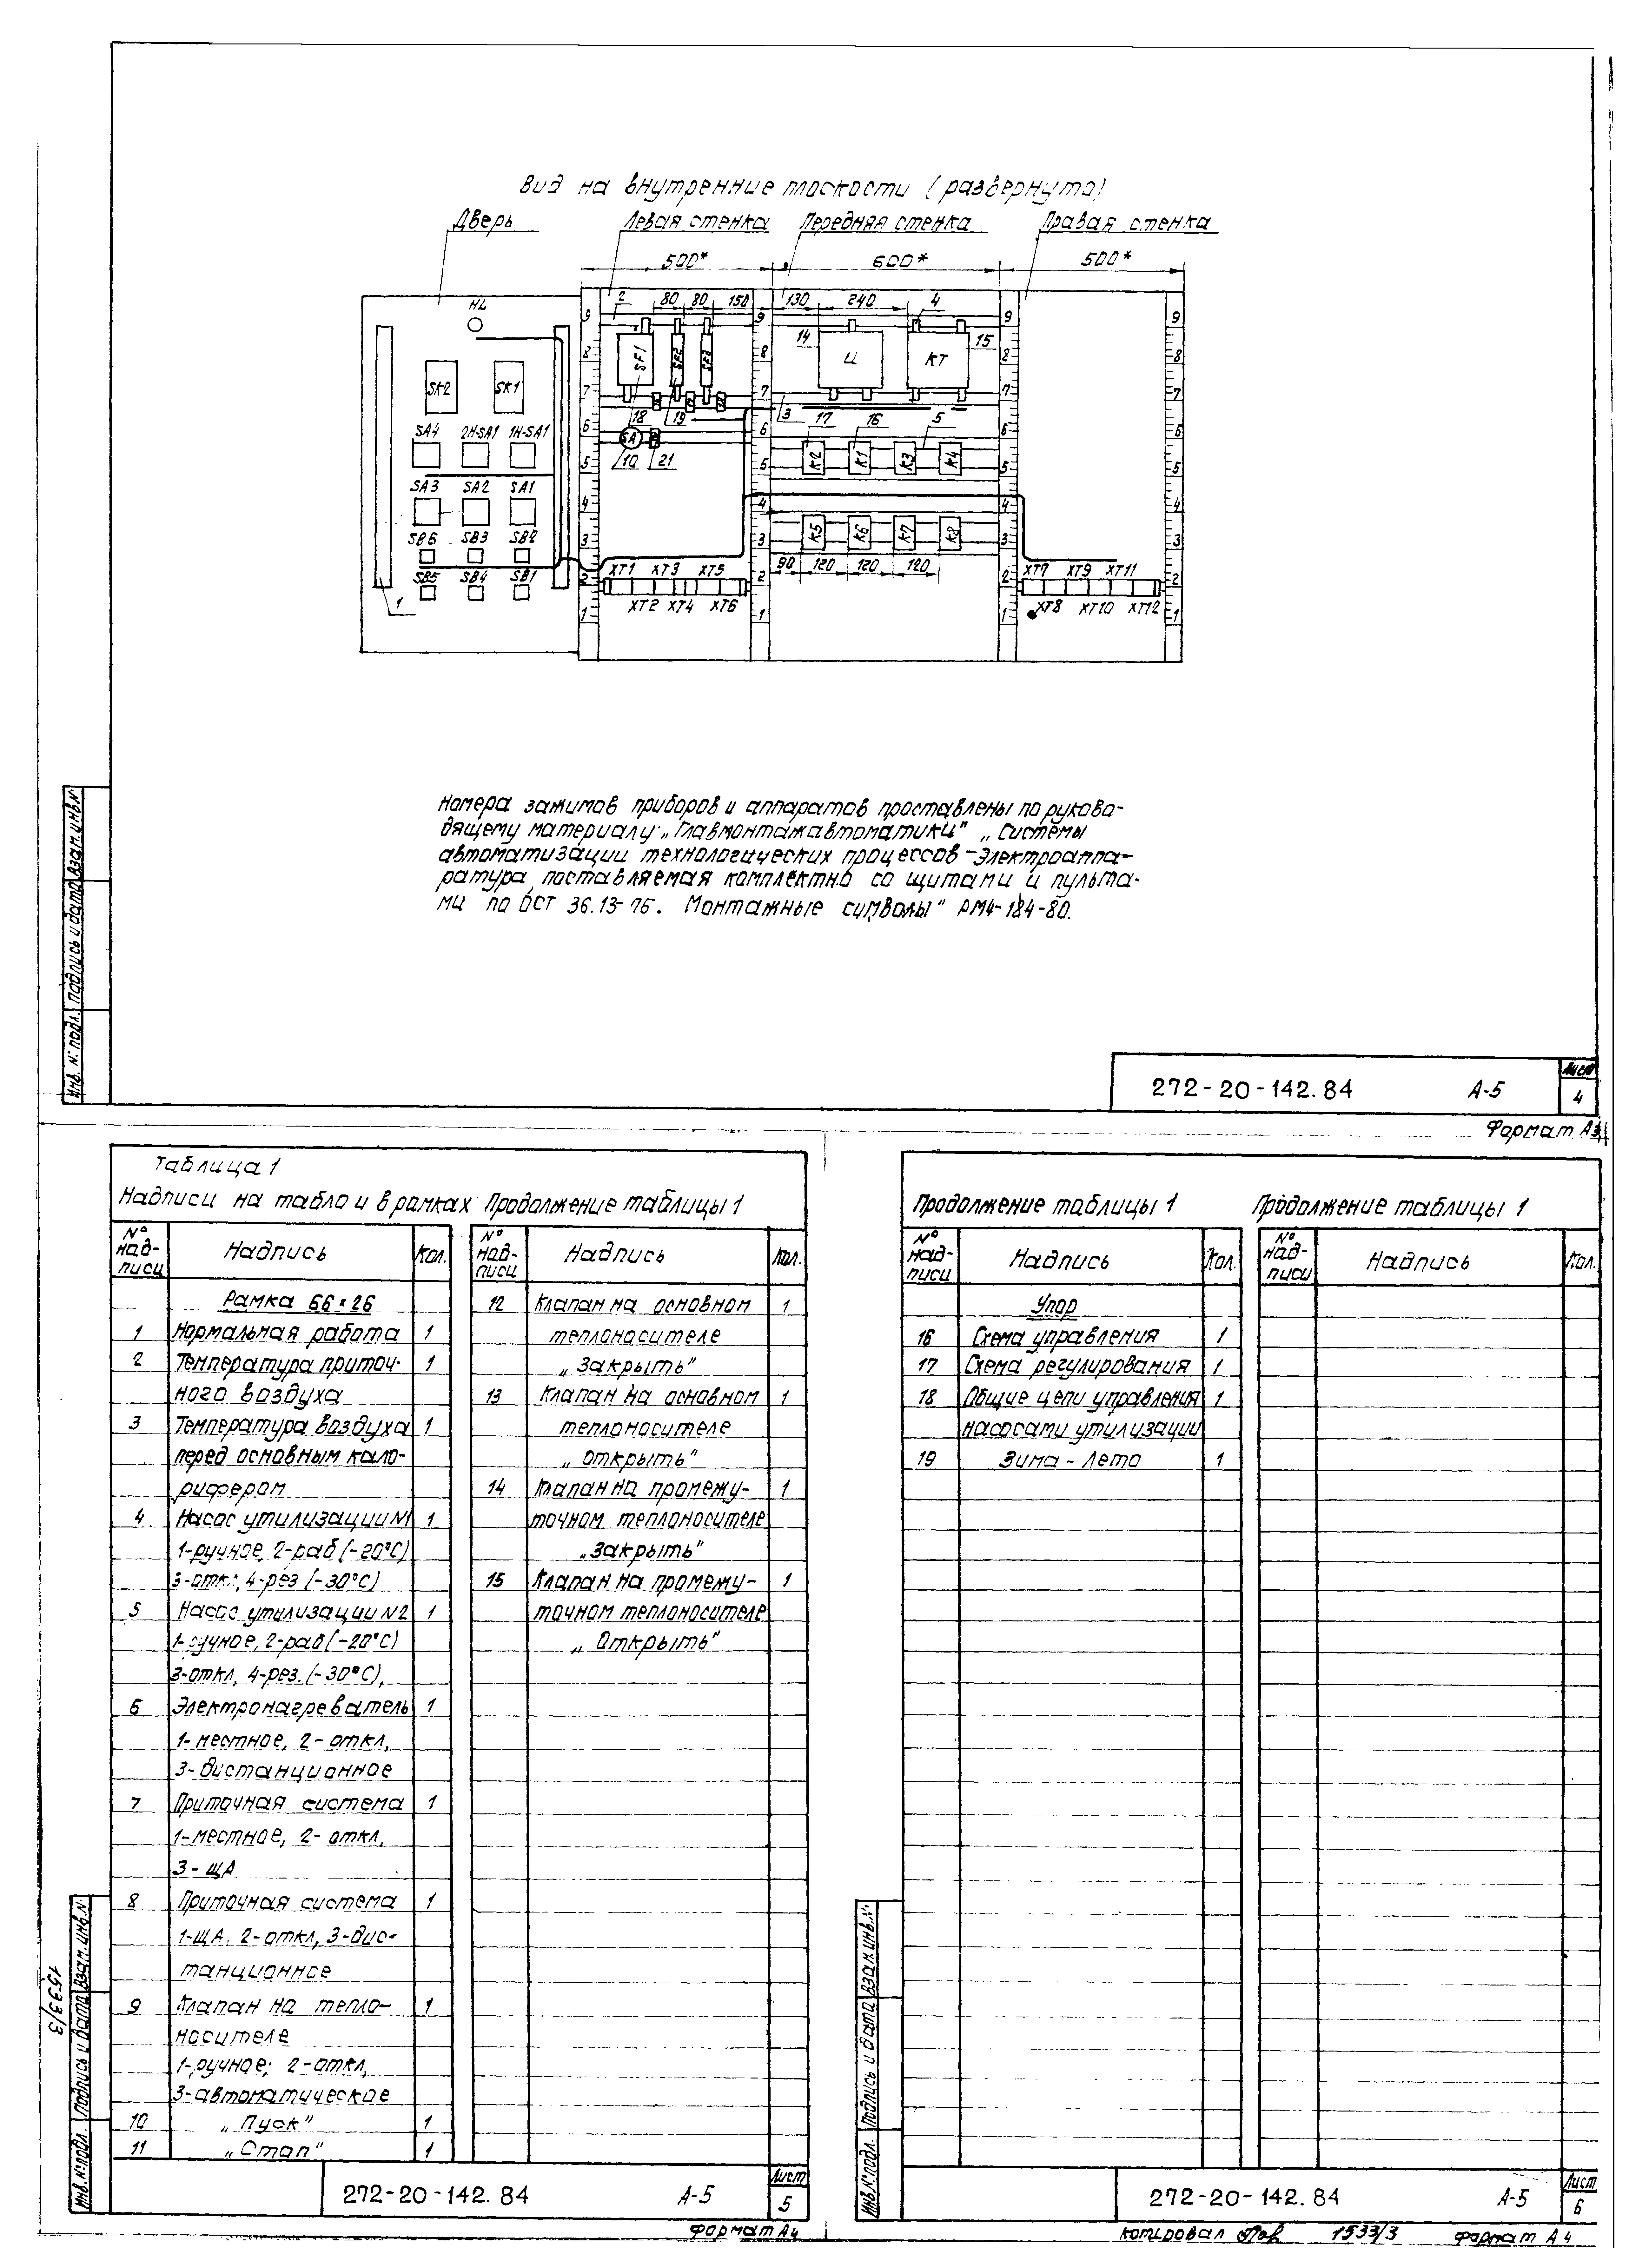 Вид на внутренние плоскости (развернуто)
Дверь
Левая стенка
Передняя стенка
Правая стенка
500*
600*
500*
HL
2
80
80
150
130
240
4
9
9
9
9
14
15
SF1
SF2
SF3
Ц
КТ
8
8
8
8
SK2
SK1
7
7
7
7
18
19
3
17
16
5
SA4
2Н-SA1
1Н-SA1
6
6
6
6
SA
10
21
K2
K1
K3
K4
5
5
5
5
SA3
SA2
SA1
4
4
4
4
SB6
SB3
SB2
K5
K6
K7
K8
3
3
3
3
90
120
120
120
SB5
SB4
SB1
XT1
XT3
XT5
XT7
XT9
XT11
2
2
2
2
1
XT2
XT4
XT6
XT8
XT10
XT12
1
1
1
1
Номера зажимов приборов и аппаратов проставлены по руково-
дящему материалу „Главмонтажавтоматики" „Системы
автоматизации технологических процессов-Электроаппа-
ратура, поставляемая комплектно со щитами и пульта-
ми по ОСТ 36.13-76. Монтажные символы" РМ4-184-80.
Инв. № подл. Подпись и дата Взам. инв. №
272-20-142.84 А-5
Лист
4
Формат А3
Таблица 1
Надписи на табло и в рамках
№ надписи Надпись Кол.
Рамка 66×26
1 Нормальная работа 1
2 Температура приточ- 1
ного воздуха
3 Температура воздуха 1
перед основным кало-
рифером
4 Насос утилизации №1 1
1-ручное, 2-раб (-20°С)
3-откл., 4-рез (-30°С)
5 Насос утилизации №2 1
1-ручное, 2-раб (-20°С)
3-откл, 4-рез. (-30°С),
6 Электронагреватель 1
1-местное, 2-откл,
3-дистанционное
7 Приточная система 1
1-местное, 2-откл,
3-ЩА
8 Приточная система 1
1-ЩА. 2-откл, 3-дис-
танционное
9 Клапан на тепло- 1
носителе
1-ручное; 2-откл,
3-автоматическое
10 „Пуск" 1
11 „Стоп" 1
Продолжение таблицы 1
№ надписи Надпись Кол.
12 Клапан на основном 1
теплоносителе
„Закрыть"
13 Клапан на основном 1
теплоносителе
„открыть"
14 Клапан на промежу- 1
точном теплоносителе
„Закрыть"
15 Клапан на промежу- 1
точном теплоносителе
„Открыть"
1533/3
Инв. № подл. Подпись и дата Взам. инв. №
272-20-142.84 А-5
Лист
5
Формат А4
Продолжение таблицы 1
№ надписи Надпись Кол.
Упор
16 Схема управления 1
17 Схема регулирования 1
18 Общие цепи управления 1
насосами утилизации
19 Зима-Лето 1
Продолжение таблицы 1
№ надписи Надпись Кол.
Инв. № подл. Подпись и дата Взам. инв. №
272-20-142.84 А-5
Лист
6
Копировал 1533/3 Формат А4